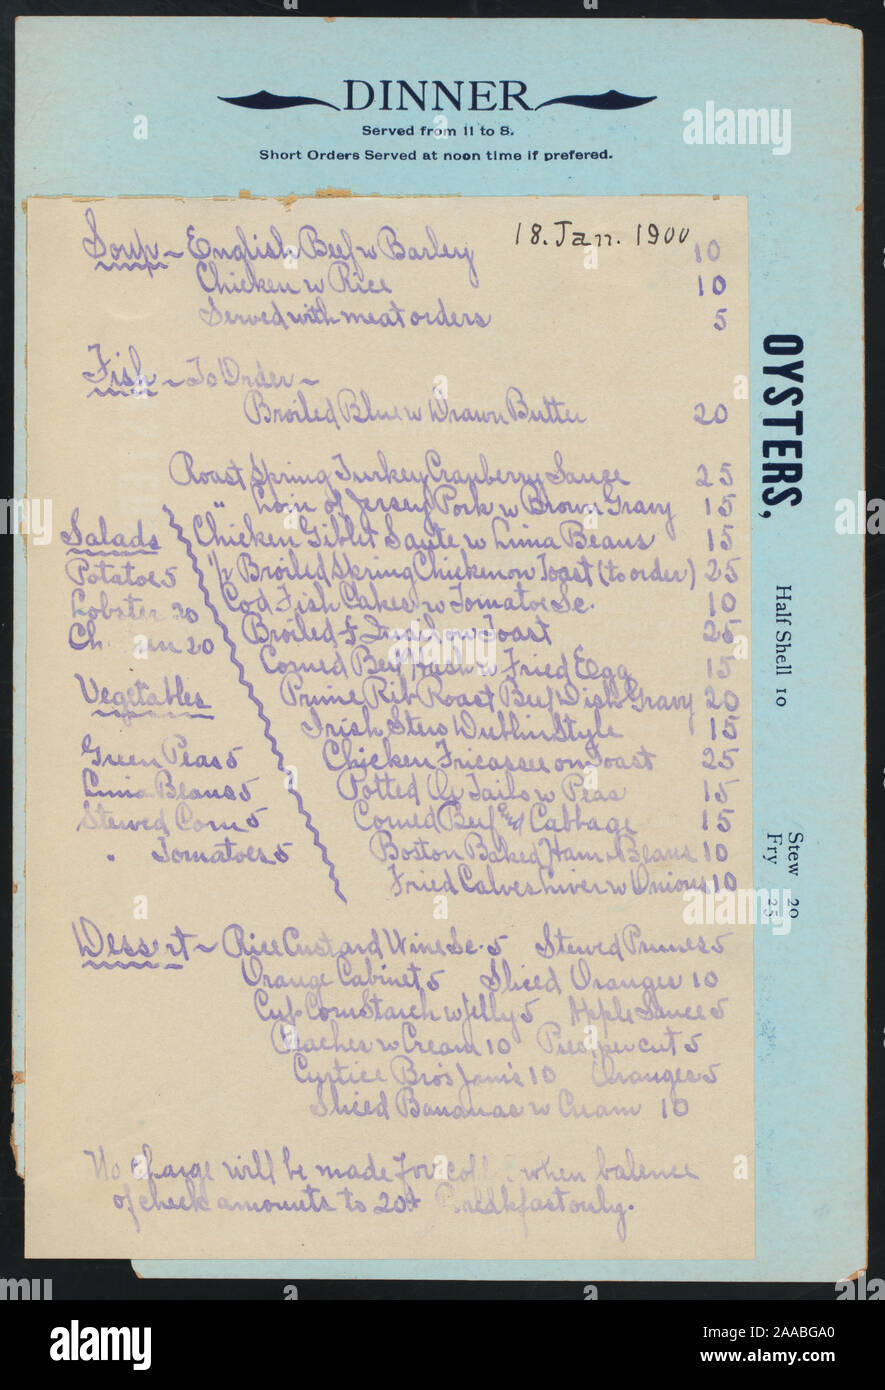 DINNER
Served from 11 to 8.
Short Orders Served at noon time if prefered.
18. Jan. 1900
Soup ~ English Beef w Barley 10
Chicken w Rice 10
Served with meat orders 5
Fish ~ To Order ~
Broiled Blue w Drawn Butter 20
Roast Spring Turkey Cranberry Sauce 25
" Loin of Jersey Pork w Brown Gravy 15
Chicken Giblet Saute w Lima Beans 15
1/2 Broiled Spring Chicken on Toast (to order) 25
Cod Fish Cakes w Tomatoe Sc. 10
Broiled on Toast 25
Corned Beef Hash w Fried Egg 15
Prime Rib Roast Beef Dish Gravy 20
Irish Stew Dublin Style 15
Chicken Fricassee on Toast 25
Potted Ox Tails w Peas 15
Corned Beef and Cabbage 15
Boston Baked Ham & Beans 10
Fried Calves Liver w Onions 10
Salads
Potatoe 5
Lobster 20
Ch en 20
Vegetables
Green Peas 5
Lima Beans 5
Stewed Corn 5
" Tomatoes 5
Dessert ~ Rice Custard Wine Sc. 5 Stewed Prunes 5
Orange Cabinet 5 Sliced Oranges 10
Cup Corn Starch w Jelly 5 Apple Sauce 5
Peaches w Cream 10 Pies, per cut 5
Curtice Bro's Jam's 10 Oranges 5
Sliced Bananas w Cream 10
No charge will be made for when balence
of check amounts to 20¢ Breakfast only.
OYSTERS,
Half Shell 10
Stew 20
Fry 25
alamy
alamy
Image ID: 2AABGA0
www.alamy.com